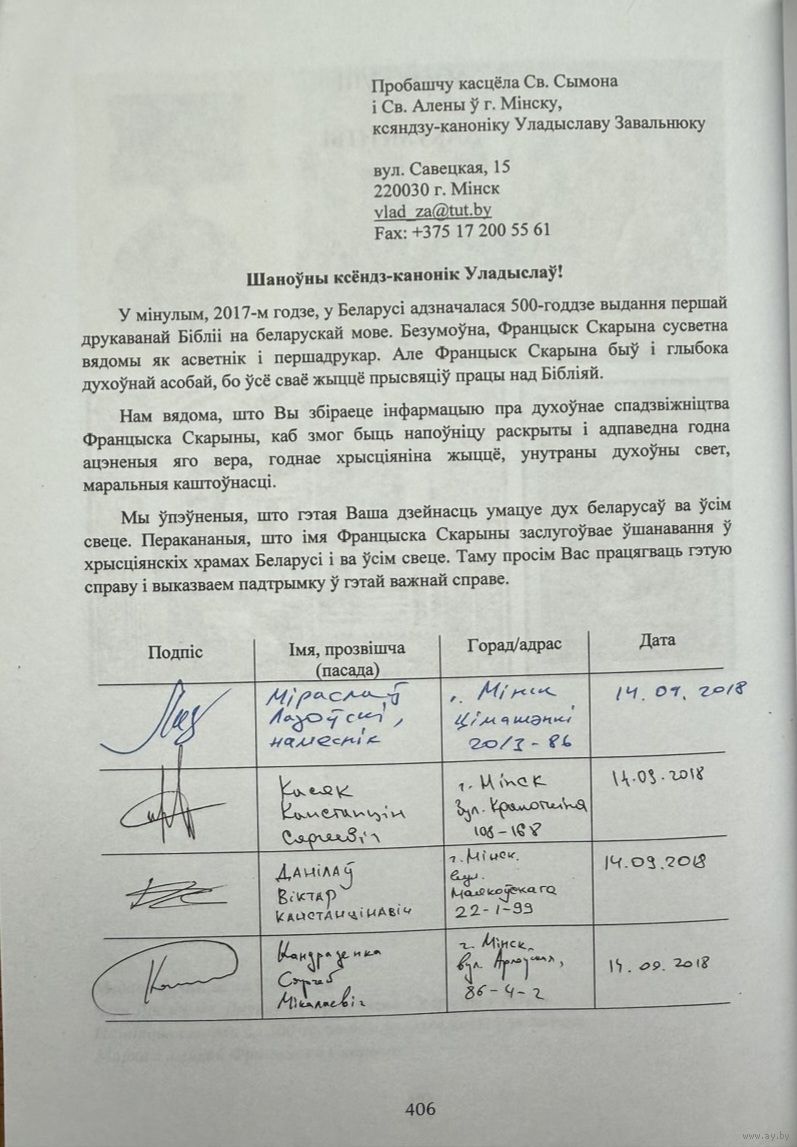 Пробашчу касцёла Св. Сымона
і Св. Алены ў г. Мінску,
ксяндзу-каноніку Уладыславу Завальнюку
вул. Савецкая, 15
220030 г. Мінск
vlad_za@tut.by
Fax: +375 17 200 55 61
Шаноўны ксёндз-канонік Уладыслаў!
У мінулым, 2017-м годзе, у Беларусі адзначалася 500-годдзе выдання першай
друкаванай Бібліі на беларускай мове. Безумоўна, Францыск Скарына сусветна
вядомы як асветнік і першадрукар. Але Францыск Скарына быў і глыбока
духоўнай асобай, бо ўсё сваё жыццё прысвяціў працы над Бібліяй.
Нам вядома, што Вы збіраеце інфармацыю пра духоўнае спадзвіжніцтва
Францыска Скарыны, каб змог быць напоўніцу раскрыты і адпаведна годна
ацэненыя яго вера, годнае хрысціяніна жыццё, унутраны духоўны свет,
маральныя каштоўнасці.
Мы ўпэўненыя, што гэтая Ваша дзейнасць умацуе дух беларусаў ва ўсім
свеце. Перакананыя, што імя Францыска Скарыны заслугоўвае ўшанавання ў
хрысціянскіх храмах Беларусі і ва ўсім свеце. Таму просім Вас працягваць гэтую
справу і выказваем падтрымку ў гэтай важнай справе.
Подпіс Імя, прозвішча Горад/адрас Дата
(пасада)
Міраслаў . Мінск 14.09.2018
Лазоўскі,
намеснік 20/3-86
Касяк г. Мінск 14.09.2018
Канстанцін вул.
Сяргеевіч 108-168
Данілаў г. Мінск. 14.09.2018
Віктар вул. Маякоўскага
Канстанцінавіч 22-1-99
Кандраценка г. Мінск, 14.09.2018
Сяргей вул.
Мікалаевіч 86-4-2
406
www.ay.by